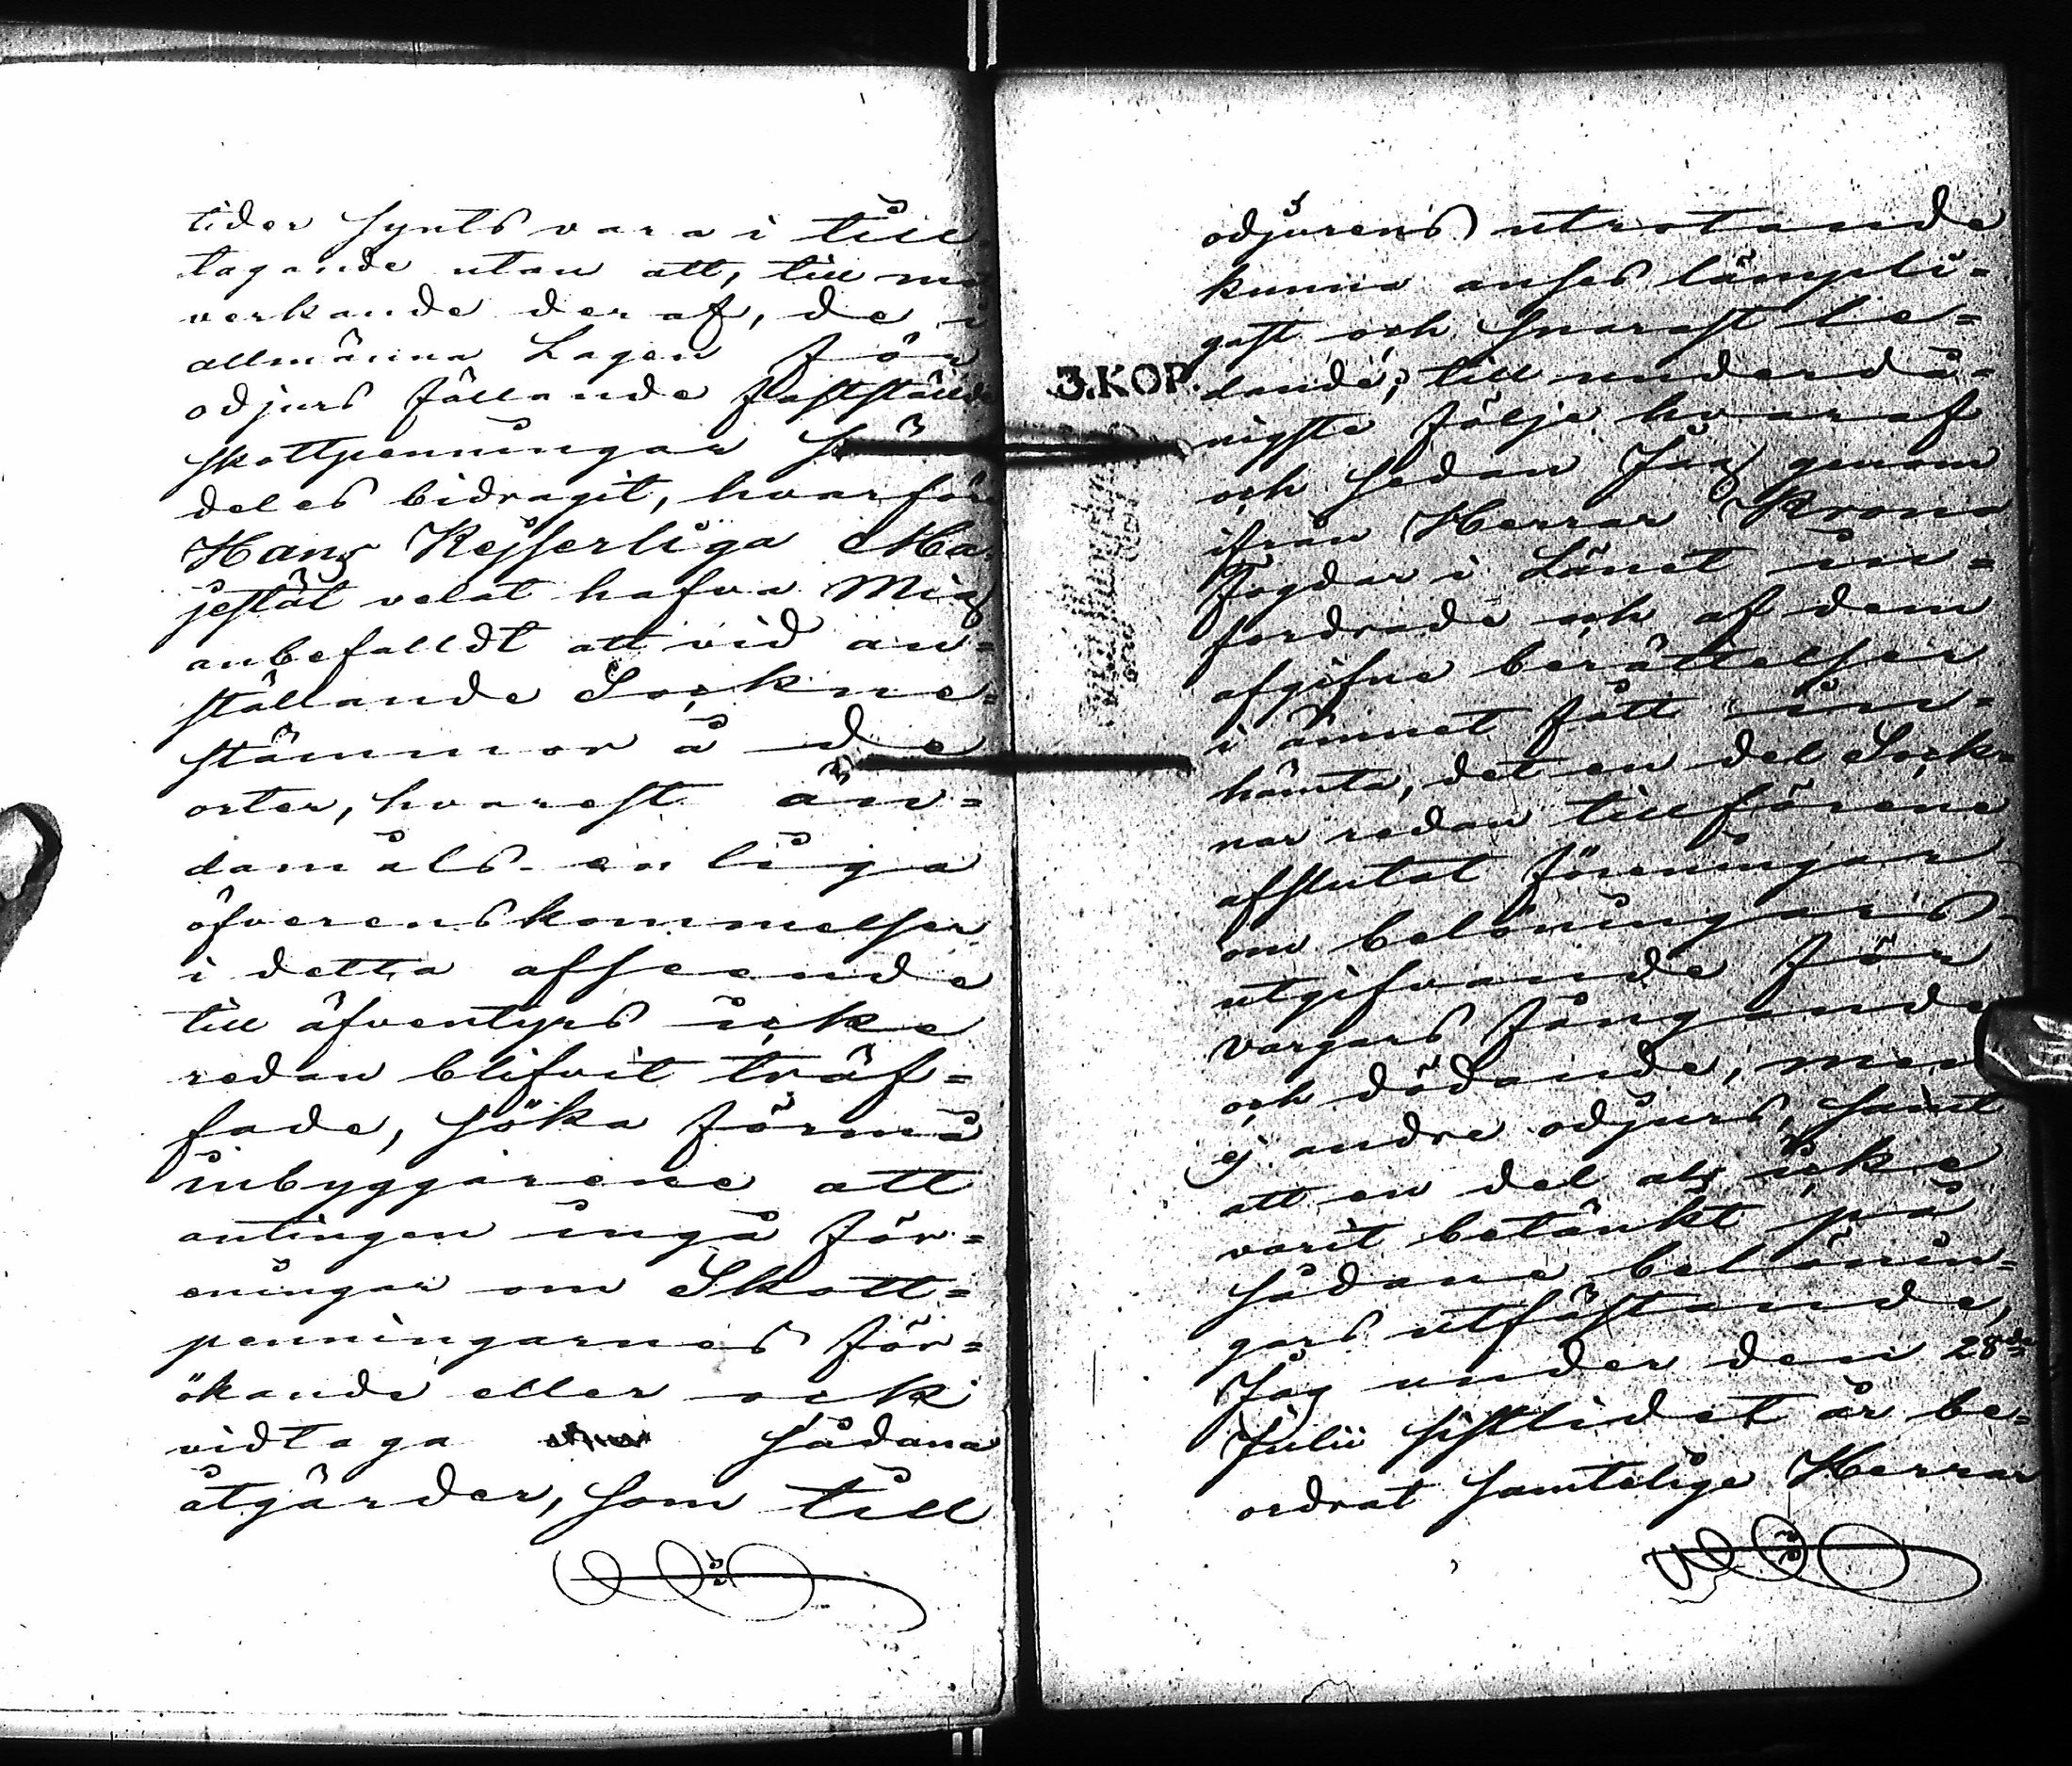 tider synts vara i till
tagande utan att, till
verkande deraf, de i
allmänna Lagen för
odjurs fällande faststälde
skottpenningar
deles bidragit, hvarför
Hans Kejserliga Ma
jestät velat hafva Mig
anbefalldt att vid an=
ställande Sockne=
stämmor å de
orter, hvarest än=
damåls-enliga
öfverenskommelser
i detta afseende
till äfventyrs icke
redan blifvit träf=
fade, söka förmå
inbyggarene att
antingen ingå för=
eningar om Skott=
penningarnes för=
ökande eller ock
vidtaga sådana
åtgärder, som till
odjurens utrotande
kunna anses lämpli=
gast och snarast le=
3.KOP.
dande; till underdå=
nigste följe hvaraf
och sedan Jag genom
ifrån Herrar Krono
Fogdar i Länet in=
fordrade och af dem
afgifne berättelser
i ämnet fått in=
hämta, det en del Sock=
nar redan tillförene
afslutat föreningar
om belöningars
utgifvande för
vargars fångande
och dödande, men
ej andre odjurs, samt
att en del als icke
varit betänkt på
sådane belönin=
gars utfästande,
Jag under den 28de
Julii sistlidet år be=
ordrat samtelige Herrar